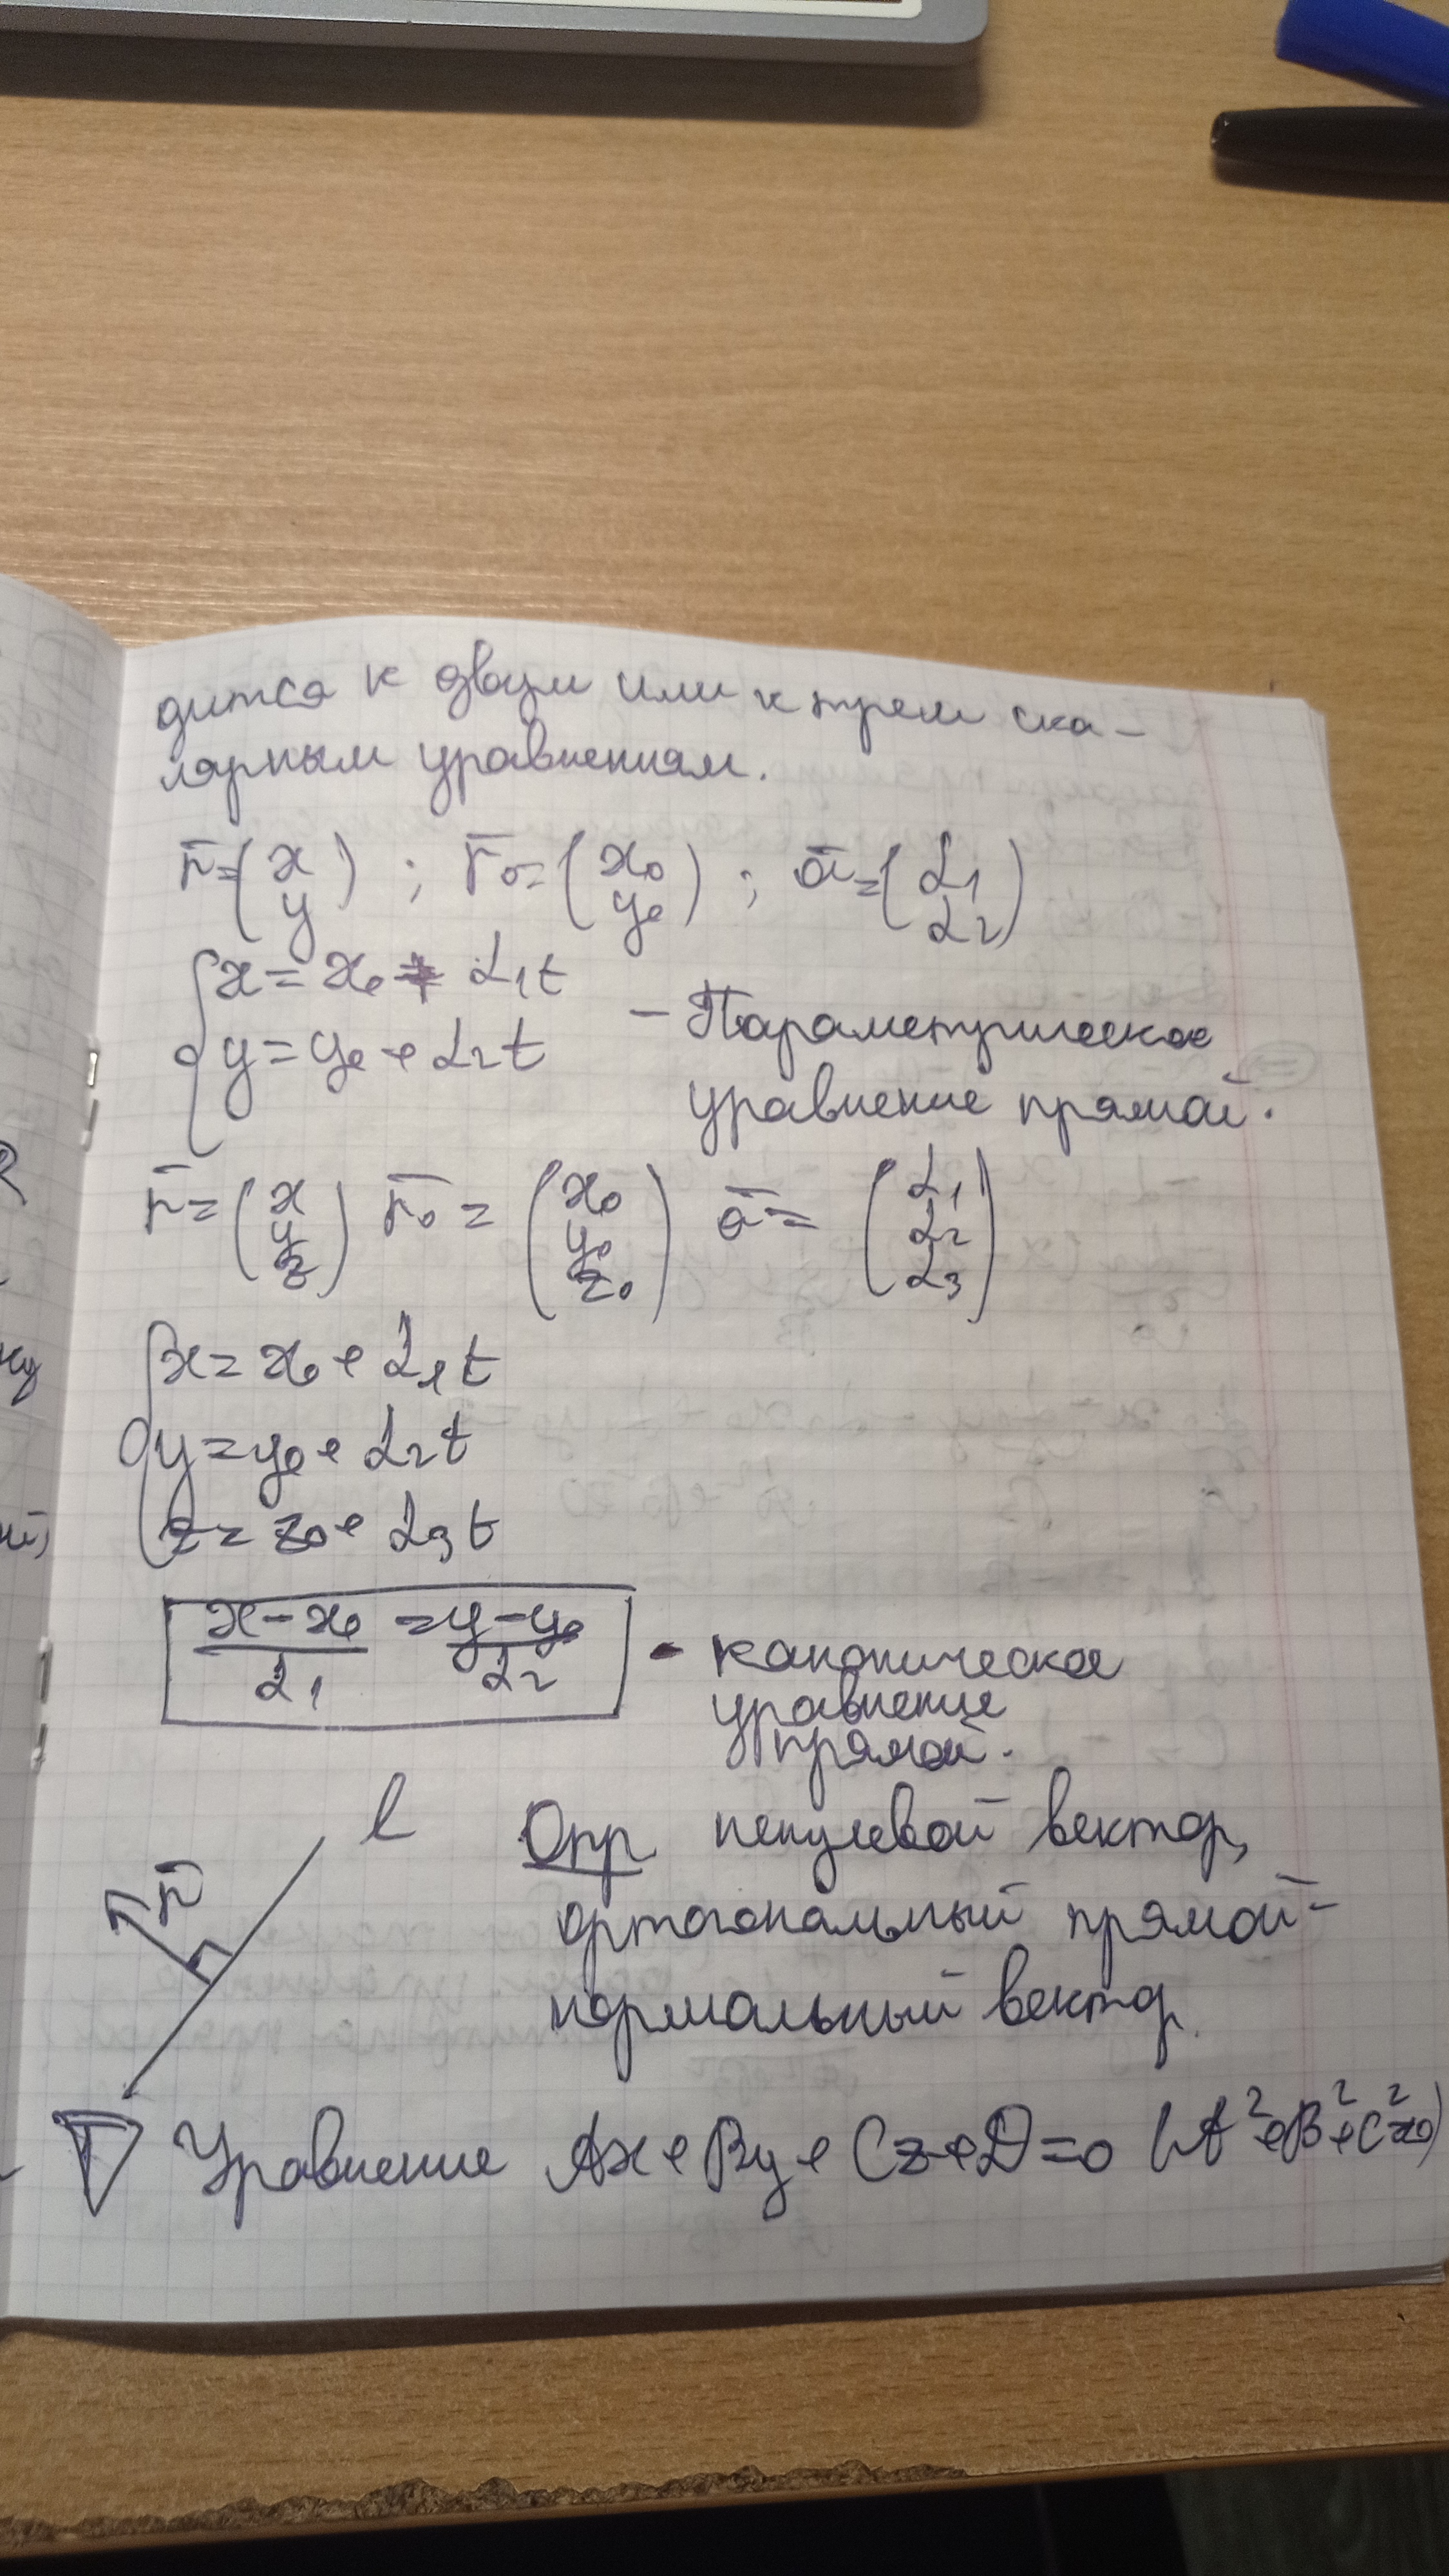 дится к двум или к трем ска-
лярным уравнениям.
r̅=(x y) ; r̅₀=(x₀ y₀) ; a̅=(α₁ α₂)
{x=x₀+α₁t
y=y₀+α₂t
- Параметрическое
уравнение прямой.
r̅=(x y z) r̅₀=(x₀ y₀ z₀) a̅=(α₁ α₂ α₃)
{x=x₀+α₁t
y=y₀+α₂t
z=z₀+α₃t
(x-x₀)/α₁ = (y-y₀)/α₂ - каноническое
уравнение
прямой.
l
n̅
Опр ненулевой вектор,
ортогональный прямой-
нормальный вектор.
T Уравнение Ax+By+Cz+D=0 (A²+B²+C²≠0)